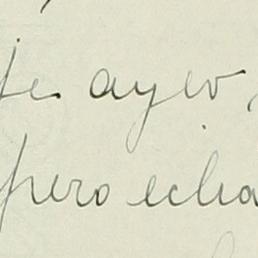 te ayer,
pero echa